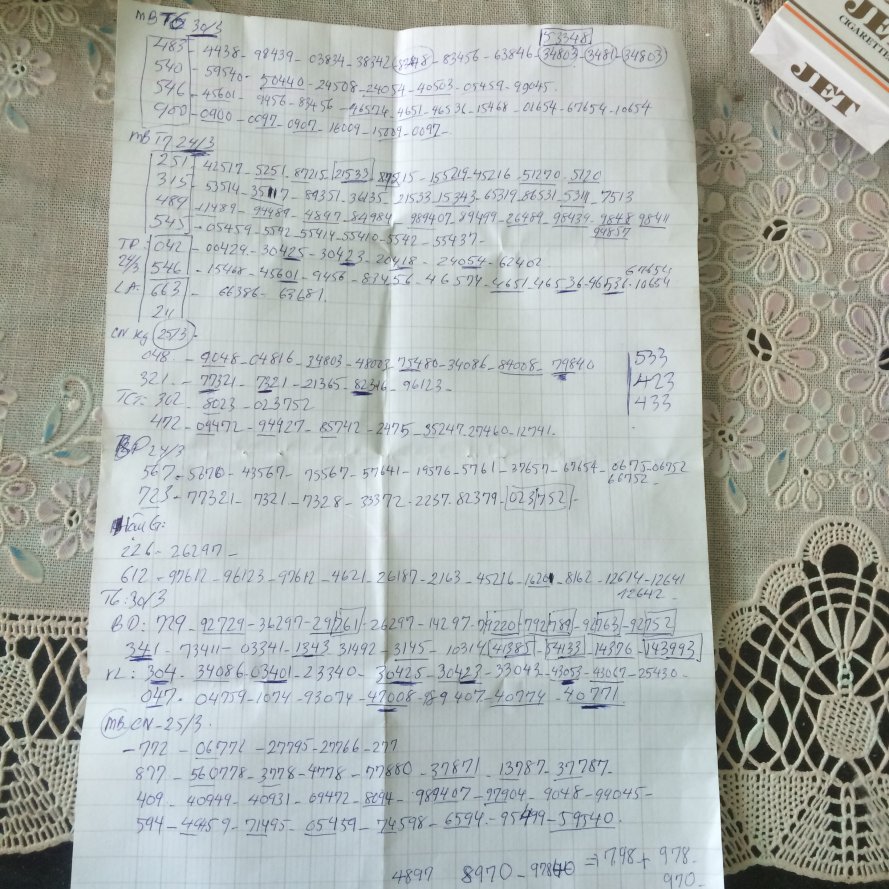 MB T6 30/3
53348
483 - 4438 - 98439 - 03834 - 38342 - 83456 - 63846 - 34803 - 3481 - 34803
540 - 59540 - 50440 - 24508 - 24054 - 40503 - 05459 - 99045
546 - 45601 - 9456 - 83456 - 46574 - 4651 - 46536 - 15468 - 01654 - 67654 - 10654
900 - 0900 - 0097 - 0907 - 16009 - 15009 - 0097 -
MB T7 24/3
251 - 42517 - 5251 - 87215 - 21533 - 87515 - 155219 - 45216 - 51270 - 5120
315 - 53514 - 35117 - 89351 - 36135 - 21533 - 15343 - 65319 - 86531 - 5311 - 7513
489 - 11489 - 94489 - 4897 - 84984 - 989407 - 89499 - 26489 - 98439 - 9848 98411
94857
545 - 05459 - 5592 - 55414 - 55410 - 5542 - 55437 -
TP: 042 - 00424 - 30425 - 30423 - 20418 - 24054 - 62402
24/3 546 - 15468 - 45601 - 9456 - 83456 - 46574 - 4651 - 46536 - 46536 - 10654
67654
LA: 663 - 66386 - 63681.
211
CN Kg 25/3 -
048 - 9048 - 04816 - 34803 - 48003 - 75480 - 34086 - 84008 - 79840
533
321 - 77321 - 7321 - 21365 - 82316 - 96123 -
423
TG: 302 - 8023 - 023752
433
472 - 09472 - 94927 - 85742 - 2475 - 35247 - 27460 - 12741.
BP 24/3
567 - 5676 - 43567 - 75567 - 57641 - 19576 - 5761 - 37657 - 67654 - 0675 - 06752
66752 -
723 - 77321 - 7321 - 7328 - 33372 - 2237 - 82379 - 023752 -
Hậu G:
226 - 26297 -
612 - 97612 - 96123 - 97612 - 4621 - 26187 - 2163 - 45216 - 1620 - 8162 - 12614 - 12641
12642 -
T6: 30/3
BD: 729 - 92729 - 36297 - 297261 - 26297 - 14297 - 74220 - 792789 - 92763 - 92752
341 - 73411 - 03341 - 1343 31492 - 3145 - 10314 41385 - 54133 - 14376 - 143993
VL: 304 - 34086 - 03401 - 23340 - 30425 - 30423 - 33043 - 43053 - 43067 - 25430 -
047 - 04759 - 1074 - 93074 - 47008 - 989407 - 40774 - 40771.
MB CN - 25/3.
- 772 - 06772 - 27795 - 27766 - 277
877 - 560778 - 3778 - 4778 - 77880 - 37871 - 13787 - 37787 -
409 - 40949 - 40931 - 69472 - 8094 - 989407 - 97904 - 9048 - 99045 -
594 - 4459 - 71495 - 05459 - 74598 - 6594 - 95499 - 59540.
4897 8970 - 97840 = 798 + 978 -
970 -
JET
CIGARETTES
JET